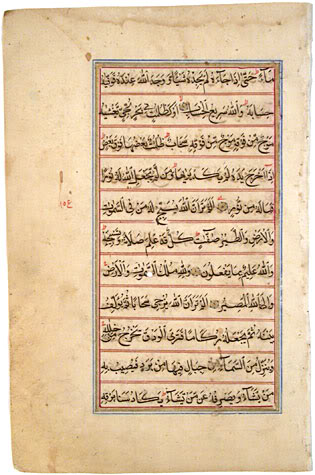 ماء حتى اذا جاءه لم يجده شيئا ووجد الله عنده فوفيه
حسابه والله سريع الحساب او كظلمات في بحر لجي يغشيه
موج من فوقه موج من فوقه سحاب ظلمات بعضها فوق بعض
اذا اخرج يده لم يكد يريها ومن لم يجعل الله له نورا
فما له من نور الم تر ان الله يسبح له من في السموات
والارض والطير صافات كل قد علم صلاته وتسبيحه
والله عليم بما يفعلون ولله ملك السموات والارض
والى الله المصير الم تر ان الله يزجي سحابا ثم يؤلف
بينه ثم يجعله ركاما فترى الودق يخرج من خلاله
وينزل من السماء من جبال فيها من برد فيصيب به
من يشاء ويصرفه عن من يشاء يكاد سنا برقه